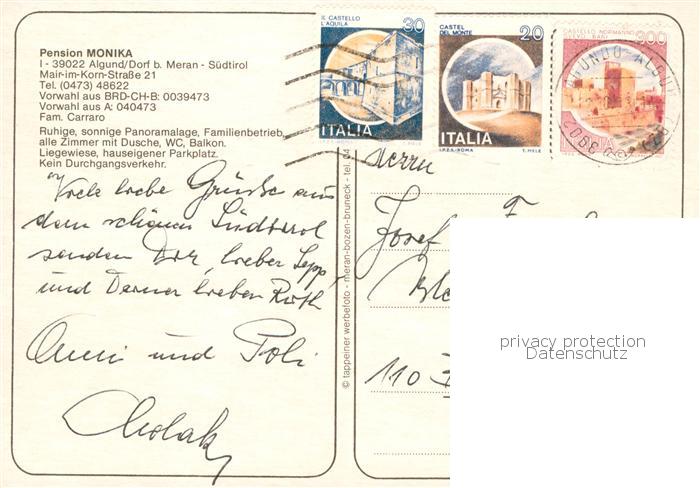 Pension MONIKA
I - 39022 Algund/Dorf b. Meran - Südtirol
Mair-im-Korn-Straße 21
Tel. (0473) 48622
Vorwahl aus BRD-CH-B: 0039473
Vorwahl aus A: 040473
Fam. Carraro
Ruhige, sonnige Panoramalage, Familienbetrieb,
alle Zimmer mit Dusche, WC, Balkon.
Liegewiese, hauseigener Parkplatz.
Kein Durchgangsverkehr.
Viele liebe Grüsse aus
dem schönen Südtirol
senden Dir, lieber Sepp
und Deiner lieben
und Poli
© tappeiner werbefoto - meran-bozen-bruneck - tel. 04
IL CASTELLO
L'AQUILA
30
ITALIA
CASTEL
DEL MONTE
20
ITALIA
I.P.Z.S.-ROMA T. MELE
CASTELLO NORMANNO
SVEVO - BARI
300
Herrn
Josef F
110
privacy protection
Datenschutz